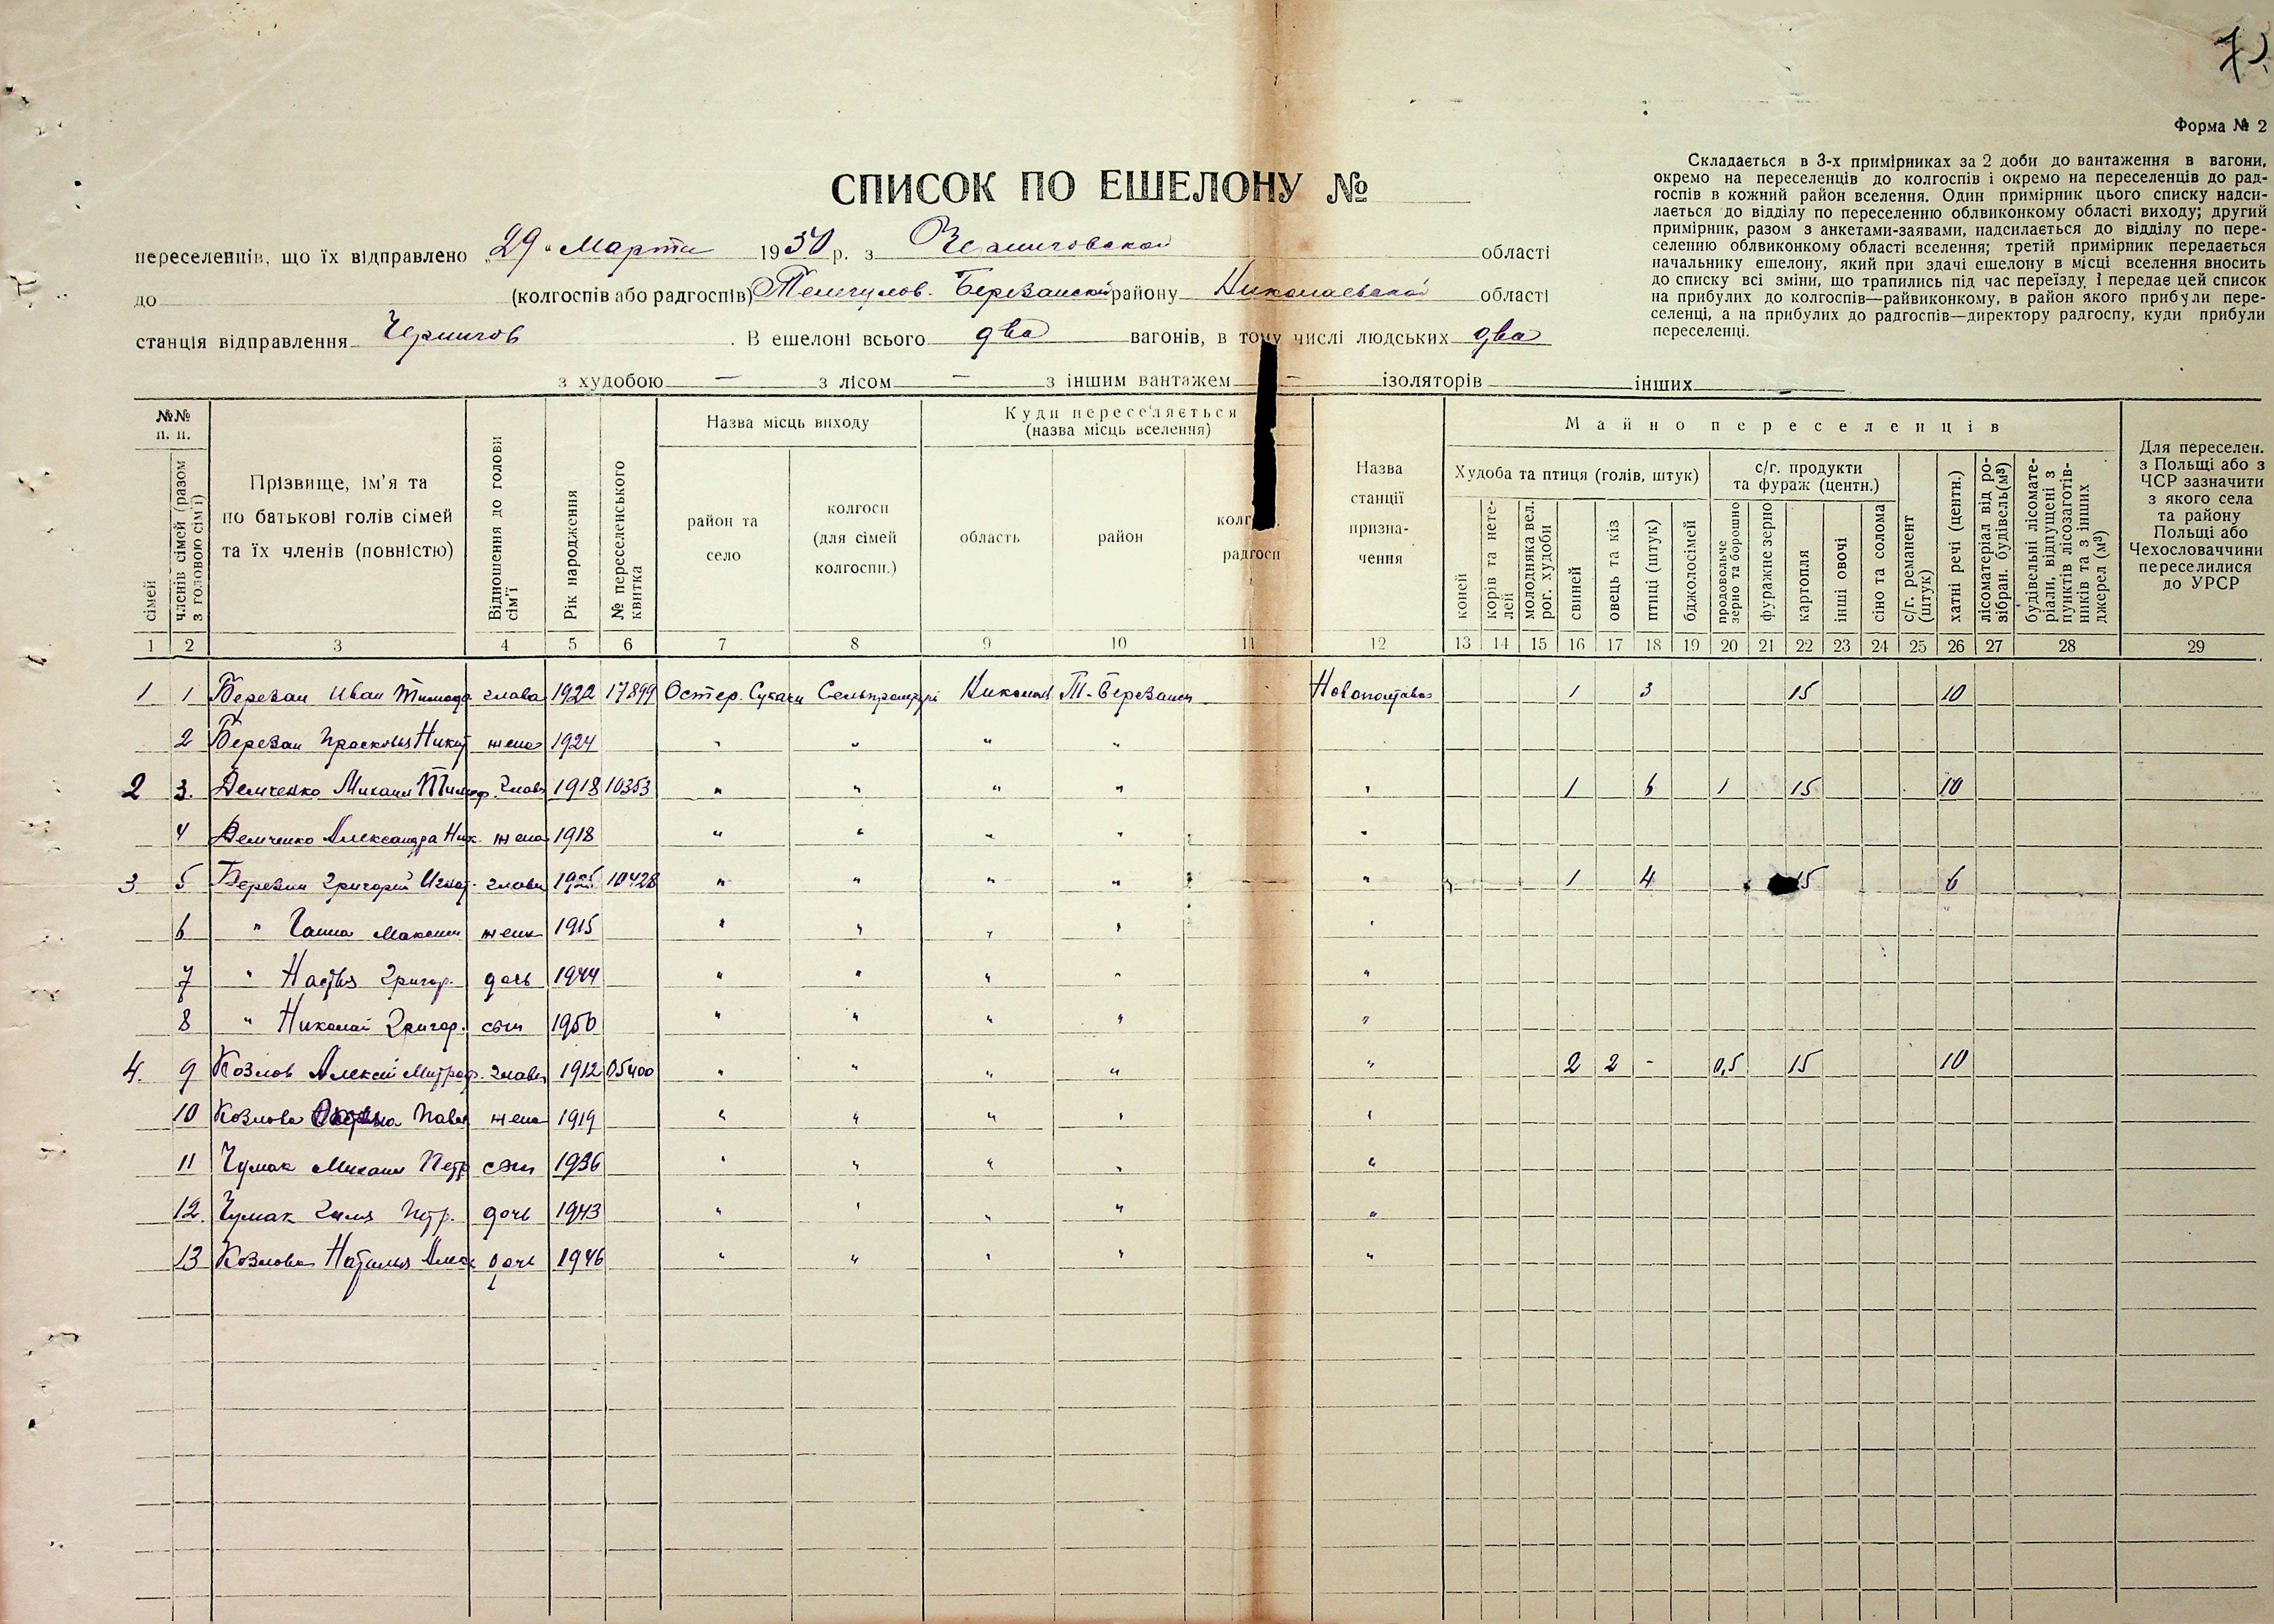 72
Форма № 2
СПИСОК ПО ЕШЕЛОНУ №
Складається в 3-х примірниках за 2 доби до вантаження в вагони,
окремо на переселенців до колгоспів і окремо на переселенців до рад-
госпів в кожний район вселення. Один примірник цього списку надси-
лається до відділу по переселенню облвиконкому області виходу; другий
примірник, разом з анкетами-заявами, надсилається до відділу по пере-
селенню облвиконкому області вселення; третій примірник передається
начальнику ешелону, який при здачі ешелону в місці вселення вносить
до списку всі зміни, що трапились під час переїзду і передає цей список
на прибулих до колгоспів—райвиконкому, в район якого прибули пере-
селенці, а на прибулих до радгоспів—директору радгоспу, куди прибули
переселенці.
переселенців, що їх відправлено „29" Марта 1950 р. з Черниговской області
до (колгоспів або радгоспів) Тилигулов. Березанский району Николаевской області
станція відправлення Чернигов. В ешелоні всього два вагонів, в тому числі людських два
з худобою — з лісом — з іншим вантажем — ізоляторів інших
№№ п. п.
сімей
членів сімей (разом з головою сім'ї)
Прізвище, ім'я та по батькові голів сімей та їх членів (повністю)
Відношення до голови сім'ї
Рік народження
№ переселенського квитка
Назва місць виходу
район та село
колгосп (для сімей колгоспн.)
Куди переселяється (назва місць вселення)
область
район
колг радгосп
Назва станції призна-чення
Майно переселенців
Худоба та птиця (голів, штук)
коней
корів та нете-лей
молодняка вел. рог. худоби
свиней
овець та кіз
птиці (штук)
бджолосімей
с/г. продукти та фураж (центн.)
продовольче зерно та борошно
фуражне зерно
картопля
інші овочі
сіно та солома
с/г. реманент (штук)
хатні речі (центн.)
лісоматеріал від ро-зібран. будівель (м³)
будівельні лісомате-ріали, відпущені з пунктів лісозаготів-ників та з інших джерел (м³)
Для переселен. з Польщі або з ЧСР зазначити з якого села та району Польщі або Чехословаччини переселилися до УРСР
1 2 3 4 5 6 7 8 9 10 11 12 13 14 15 16 17 18 19 20 21 22 23 24 25 26 27 28 29
1 1 Березан Иван Тимоф глава 1922 17899 Остер. Сукачи Николаев Т-Березанск Новополтавка 1 3 15 10
2 Березан Прасковья Никит жена 1924 " " " "
2 3. Демченко Михаил Тимоф. глава 1918 10353 " " " " " 1 6 1 15 10
4 Демченко Александра Ник. жена 1918 " " " " "
3 5 Березан Григорий Игнат. глава 1925 10428 " " " " " 1 4 15 6
6 " Ганна Максим жена 1915 " " " " "
7 " Настья Григор. дочь 1944 " " " " "
8 " Николай Григор. сын 1950 " " " " "
4. 9 Козлов Алексей Митроф. глава 1912 05400 " " " " " 2 2 - 0,5 15 10
10 Козлова Павл жена 1919 " " " " "
11 Чумак Михаил Петр сын 1936 " " " " "
12. Чумак Галя Петр. дочь 1943 " " " " "
13 Козлова Наталья Алек дочь 1946 " " " " "